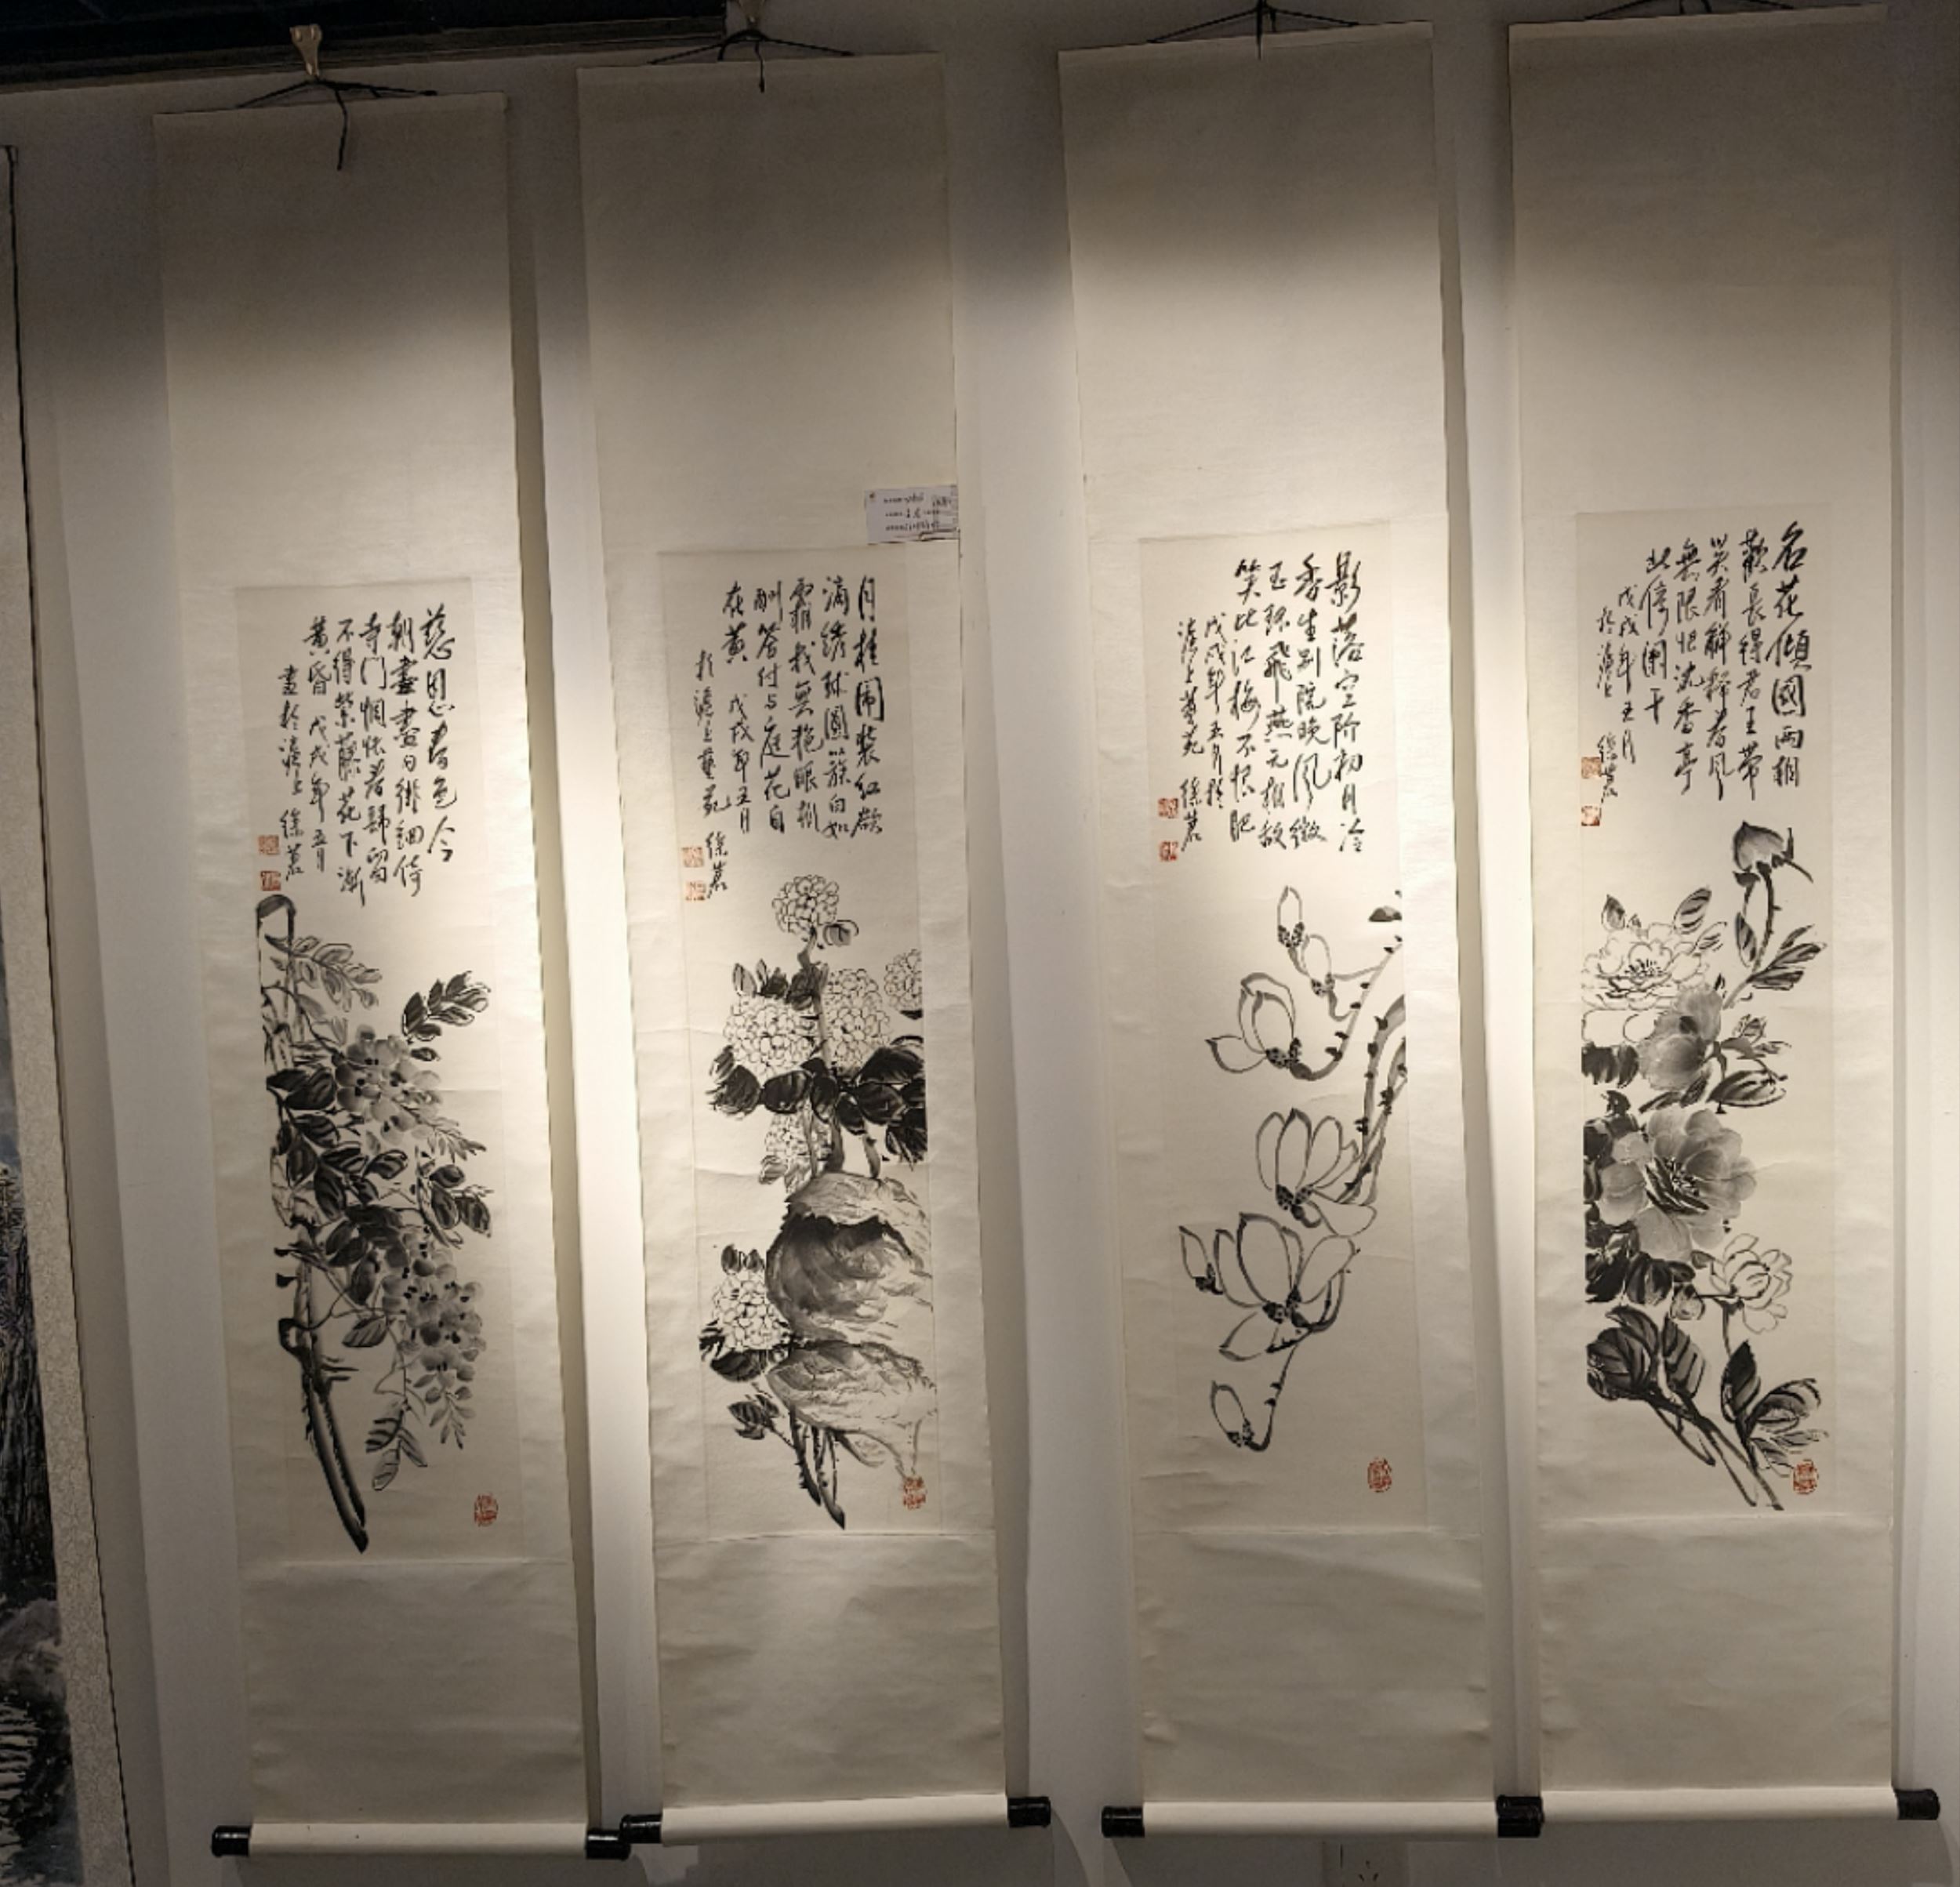 名花傾國兩相
歡長得君王帶
笑看解釋春風
無限恨沈香亭
北倚闌干
戊戌年五月
於滬上 徐
影落空階初月冷
香生別院晚風微
玉環飛燕元相敵
笑比江梅不恨肥
戊戌年五月於
滬上藝苑 徐
月桂圍裝紅欲
滿綉球圓簇白如
霜我無艷眼相
酬答付与庭花自
在黃 戊戌年五月
於滬上藝苑 徐
慈恩春色今
朝盡盡日徘徊倚
寺門惆悵春歸留
不得紫藤花下漸
黃昏 戊戌年五月
畫於滬上 徐